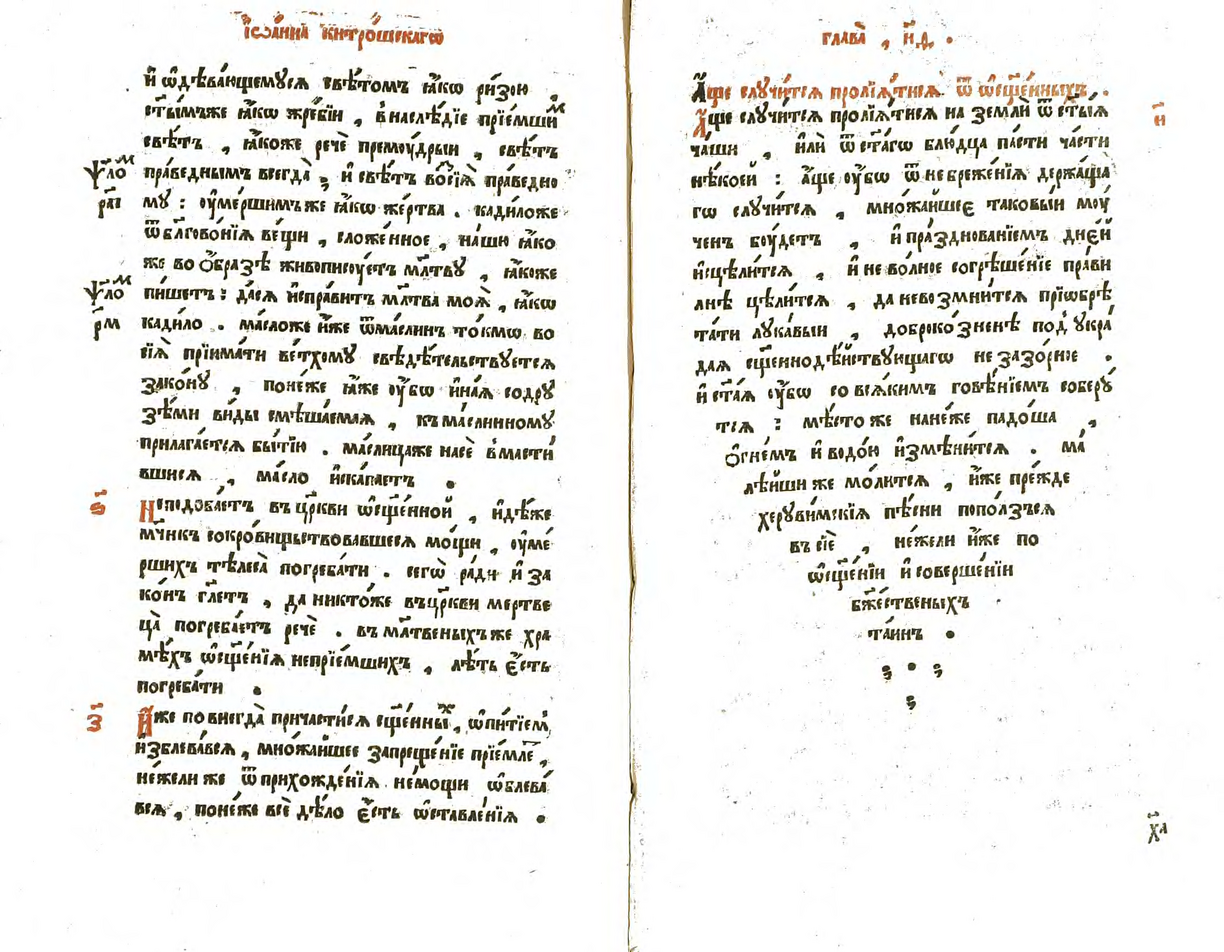 Їѡа́нна̀ ки́тро́шскагѡ
и҆ ѡ҆дѣва́ющемуся свѣ́томъ ꙗ҆́кѡ ри́зою ,
ст҃ымъже ꙗ҆́кѡ жре́бїи , в̾наслѣ́дїе прїе́мшиⷨ
свѣ́тъ , ꙗ҆́коже речѐ премоу́дрыи , свѣ́тъ
пра́ведныⷨмъ всегда̀ , и҆ свѣ́тъ во́сїѧ̀ пра́ведно
ѱало́ⷨ
му : оу҆ме́ршимъ же ꙗ҆́кѡ же́ртва . кади́ложе
р҃аі
ѿ бл҃гово́нїѧ ве́щи , сложе́нное , на́шю ꙗ҆́ко
же во ѻ҆́бразѣ живописꙋ́етъ мл҃твꙋ , ꙗ҆́коже
пи́шетъ : да сѧ и҆спра́витъ мл҃тва моѧ̀ , ꙗ҆́кѡ
ѱало́ⷨ
кади́ло . ма́сложе и҆́же ѿ ма́слинъ то́кмѡ во
р҃м
сїѧ̀ прїима́ти ве́тхомꙋ свѣдѣ́тельствꙋетсѧ
зако́нꙋ , поне́же ꙗ҆́же оу҆́бѡ и҆на́ѧ содрꙋ
зѣ́ми ви́ды смѣша́емаѧ , къ ма́слинномꙋ
прилага́етсѧ бытїю̀ . ма́слицаже насѐ в̾масти́
вшисѧ , ма́сло и҆ска́паетъ .
ѕ҃
Неподоба́етъ въ цр҃кви ѡ҆сщ҃е́нной , и҆дѣ́же
мч҃нкъ сокро́вищьствовавшеесѧ мо́щи , оу҆ме́
ршихъ тѣлеса̀ погреба́ти . сегѡ̀ ра́ди и҆ за
ко́нъ гл҃етъ , да никто́же въ цр҃кви мертве
ца̀ погреба́етъ речѐ . въ мл҃твеныхъ же хра́
мѣхъ ѡ҆сщ҃е́нїѧ непрїе́мшихъ , лѣ́ть є҆́сть
погреба́ти .
з҃
И҆́же по внегда̀ причасти́сѧ сщ҃е́нныⷯ , ѡ҆ питїе́мъ ,
и҆зблева́всѧ , мно́жаишее запреще́нїе прїе́млеⷮ ,
не́жели же ѿ прихожде́нїѧ не́мощи ѡ҆блева́
всѧ , поне́же всѐ дѣ́ло є҆́сть ѡ҆ставле́нїѧ .
глава̀ , н҃д .
А҆́ще слꙋчи́тсѧ пролїѧ́тисѧ ѿ ѡ҆сщ҃е́нныхъ .
А҆́ще слꙋчи́тсѧ пролїѧ́тисѧ на землѝ ѿ ст҃ы́ѧ
и҃
ча́ши , и҆лѝ ѿ ст҃а́гѡ блю́дца па́сти ча́сти
нѣ́коей : а҆́ще оу҆́бѡ ѿ небреже́нїѧ держа́ща
гѡ слꙋчи́тсѧ , мно́жайшеє таковы́и мꙋ́
ченъ бꙋ́детъ , и҆ пра́зднованїемъ дне́й
и҆сцѣли́тсѧ , и҆ не во́лное согрѣше́нїе пра́ви
лнѣ цѣли́тсѧ , да невозмни́тсѧ прїѡбрѣ
та́ти лꙋка́выи , доброко́зненѣ под̾ ꙋкра́
даѧ сщ҃еннодѣ́йствꙋющагѡ не зазо́рное .
и҆ ст҃а́ѧ оу҆́бѡ со всѧ́кимъ говѣ́нїемъ соберꙋ́
тсѧ : мѣ́сто же нане́же падо́ша ,
ѻ҆гне́мъ и҆ водо́ю и҆змѣни́тсѧ . ма́
лѣ́йши же мо́литсѧ , и҆́же пре́жде
херꙋви́мскїѧ пѣ́сни попо́лзъсѧ
въ сїѐ , не́жели и҆́же по
ѡ҆сщ҃е́нїи и҆ соверше́нїи
бж҃е́ственыхъ
та́инъ .
х҃л